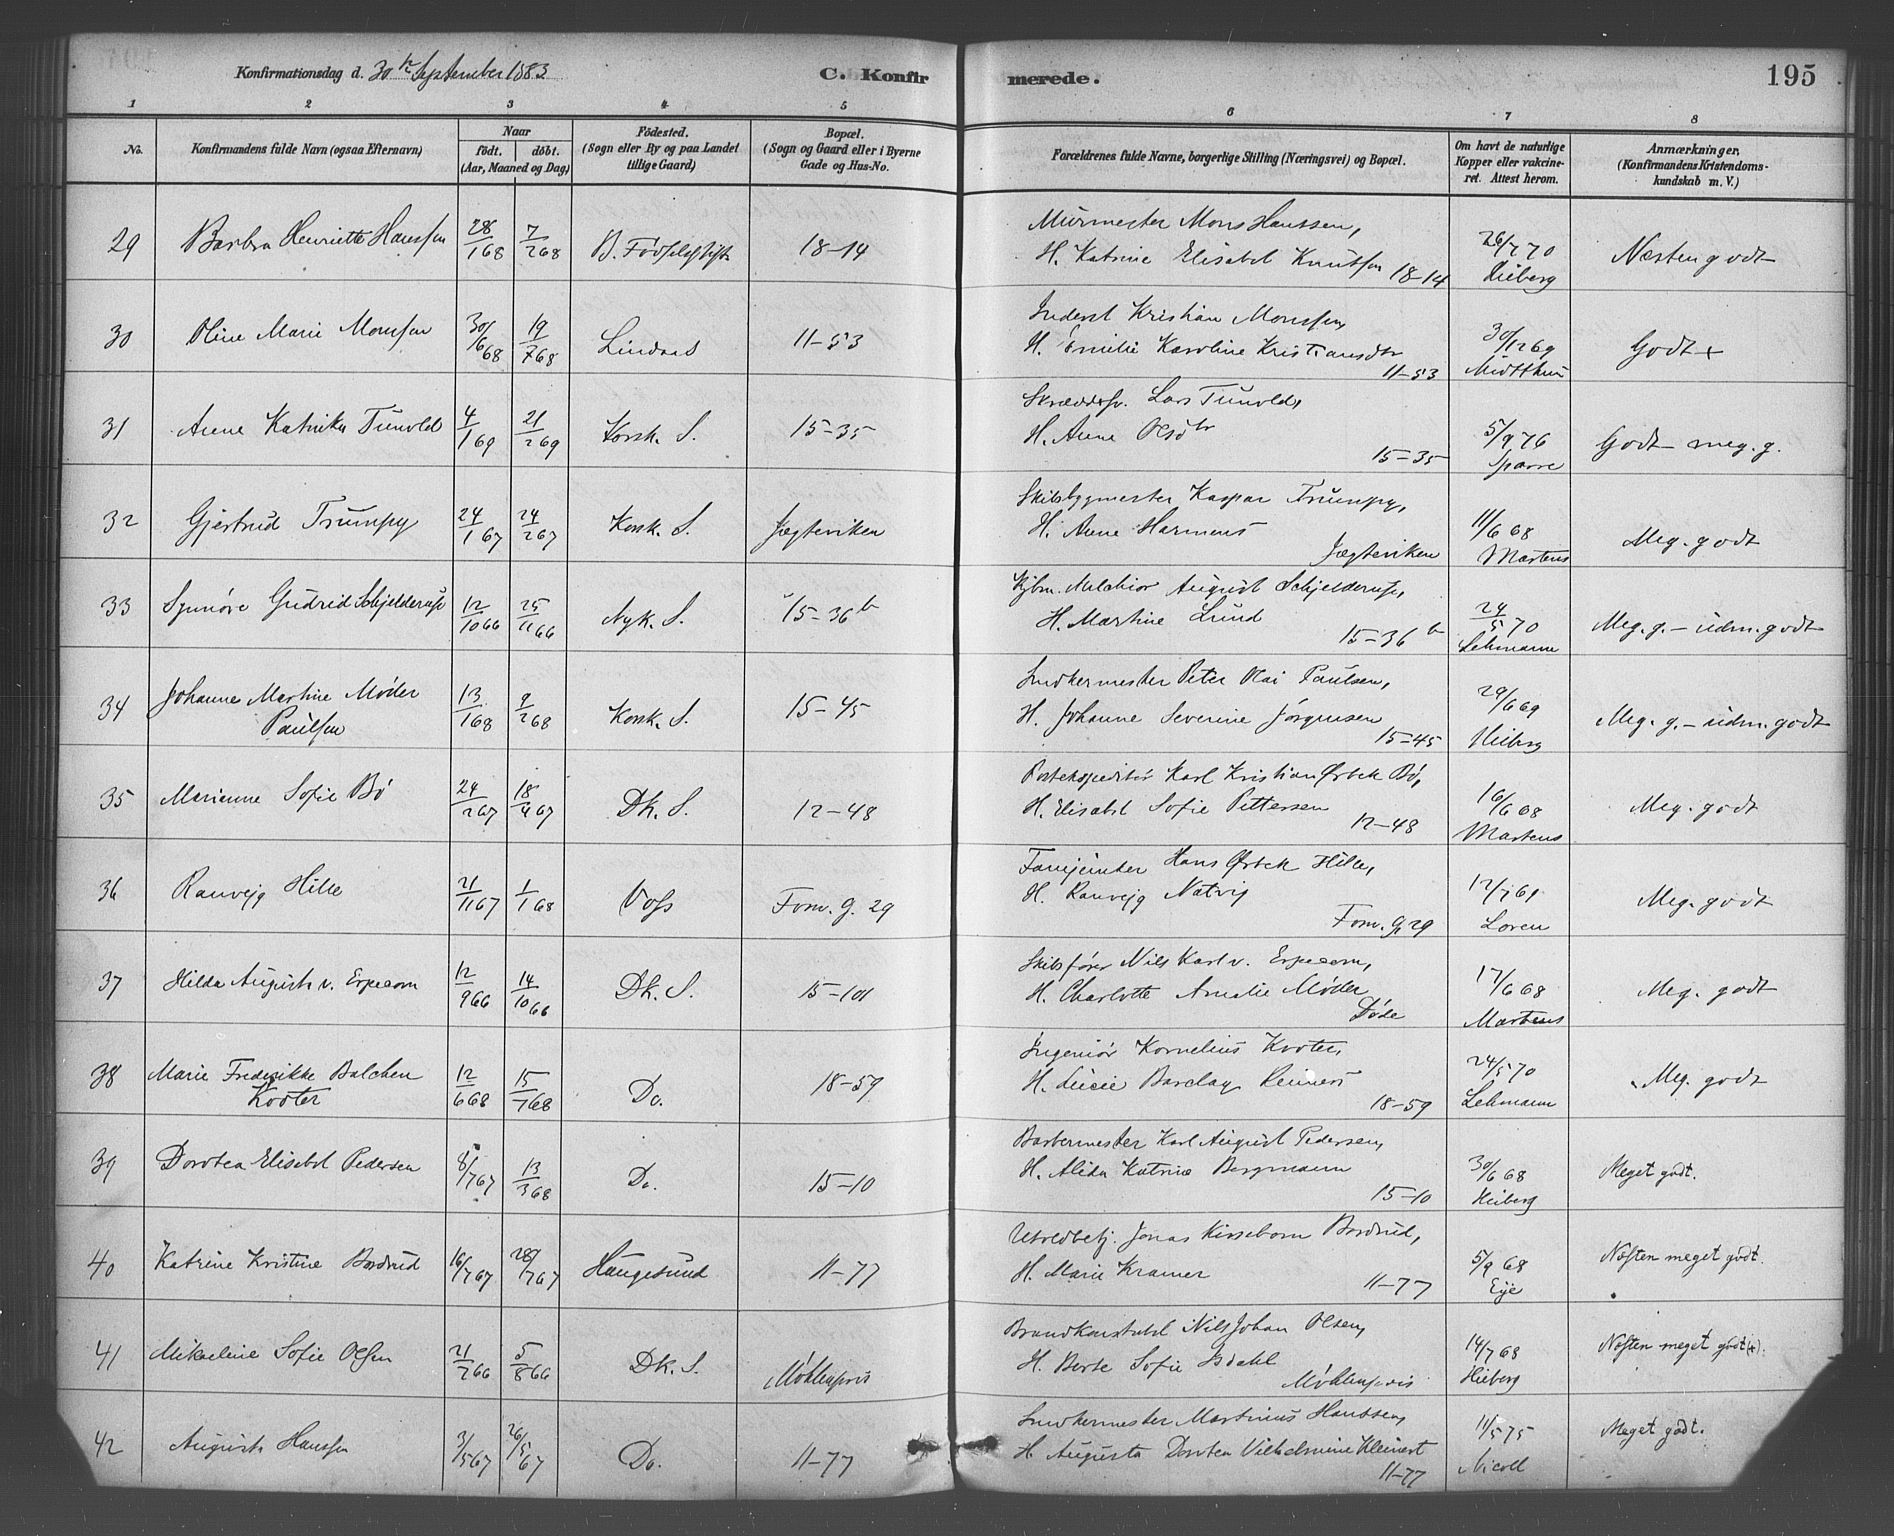 Konfirmationsdag d. 30te September 1883 C. Konfirmerede. 195
1 2 3 4 5 6 7 8
No. Konfirmandens fulde Navn (ogsaa Efternavn) Naar født. døbt. (Aar, Maaned og Dag) Fødested. (Sogn eller By og paa Landet tillige Gaard.) Bopæl. (Sogn og Gaard eller i Byerne Gade og Hus-No. Forældrenes fulde Navne, borgerlige Stilling (Næringsvei) og Bopæl. Om havt de naturlige Kopper eller vakcineret. Attest herom. Anmærkninger, (Konfirmandens Kristendomskundskab m. V.)
29 Barbra Henriette Hanssen 28/1 68 7/2 68 B. Fødselsstift. 18-14 Murmester Mons Hanssen, 26/7 70 Næsten godt
H. Katrine Elisabet Knutsen 18-14 Heiberg
30 Oline Marie Monsen 30/6 68 19/7 68 Lindaas 11-53 Inderst Kristian Monsen, 30/12 69 Godt +
H. Emilie Karoline Kristiansdtr 11-53
31 Anne Katrika Tunold 4/1 69 21/2 69 Korsk. S. 15-35 Skrædersv. Lars Tunold, 5/9 76 Godt - meg. g.
H. Anne Olsdtr 15-35 Sparre
32 Gjertrud Trumpy 24/1 67 24/2 67 Korsk. S. Jægteviken Skibsbygmester Kaspar Trumpy, 11/6 68 Meg. godt
H. Anne Harmens Jægteviken Martens
33 Synnøve Gudrid Schjelderup 12/10 66 25/11 66 Nyk. S. 15-36b Kjbm. Melchior August Schjelderup, 24/5 70 Meg. g. - udm. godt
H. Martine Lund 15-36b Lehmann
34 Johanne Martine Møder 13/1 68 9/2 68 Korsk. S. 15-45 Snedkermester Peter Olai Paulsen, 29/6 69 Meg. g. - udm. godt
Paulsen H. Johanne Severine Jørgensen 15-45 Heiberg
35 Marianne Sofie Bø 24/2 67 18/4 67 Dk. S. 12-48 Postekspeditør Karl Kristian Ørbek Bø, 16/6 68 Meg. godt
H. Elisabet Sofie Pettersen 12-48 Martens
36 Ranveig Hille 21/11 67 1/1 68 Voss Forv. G. 29 Hans Ørbek Hille, Meg. godt
H. Ranveig Natvig Forv. G. 29 Loren
37 Hilda Augusta v. Erpecom 12/9 66 14/10 66 Dk. S. 15-101 Skibsfører Nils Karl v. Erpecom, 17/6 68 Meg. godt
H. Charlotte Amalie Møder Døde Martens
38 Marie Frederikke Balchen 12/6 68 15/7 68 Do. 18-59 Ingeniør Kornelius Kooter, 24/5 70 Meg. godt
Kooter H. Lucie Barclay 18-59 Lehmann
39 Dorotea Elisabet Pedersen 8/7 67 13/3 68 Do. 15-10 Barbermester Karl August Pedersen, 30/6 68 Meget godt.
H. Alida Katrine Bergmann 15-10 Heiberg
40 Katrine Kristine Bordrud 16/7 67 28/7 67 Haugesund 11-77 Jonas Bordrud, 5/9 68 Næsten meget godt.
H. Marie Kramer 11-77 Eye
41 Mikaeline Sofie Olsen 21/7 66 5/8 66 Dk. S. Møhlenpris Brandkonstabel Nils Johan Olsen, 14/7 68 Næsten meget godt (+).
H. Berte Sofie Isdahl Møhlenpris Heiberg
42 Augusta Hanssen 3/5 67 26/5 67 Do. 11-77 Snedkermester Martinus Hanssen, 11/5 75 Meget godt.
H. Augusta Dorotea Vilhelmine Kleinert 11-77 Nicoll